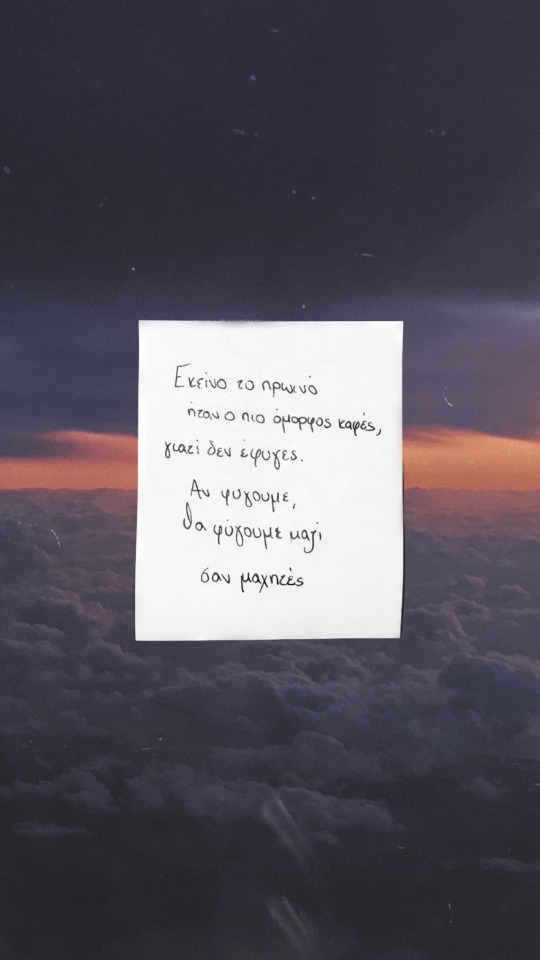 Εκείνο το πρωινό
ήταν ο πιο όμορφος καφές,
γιατί δεν έφυγες.
Αν φύγουμε,
θα φύγουμε μαζί
σαν μαχητές